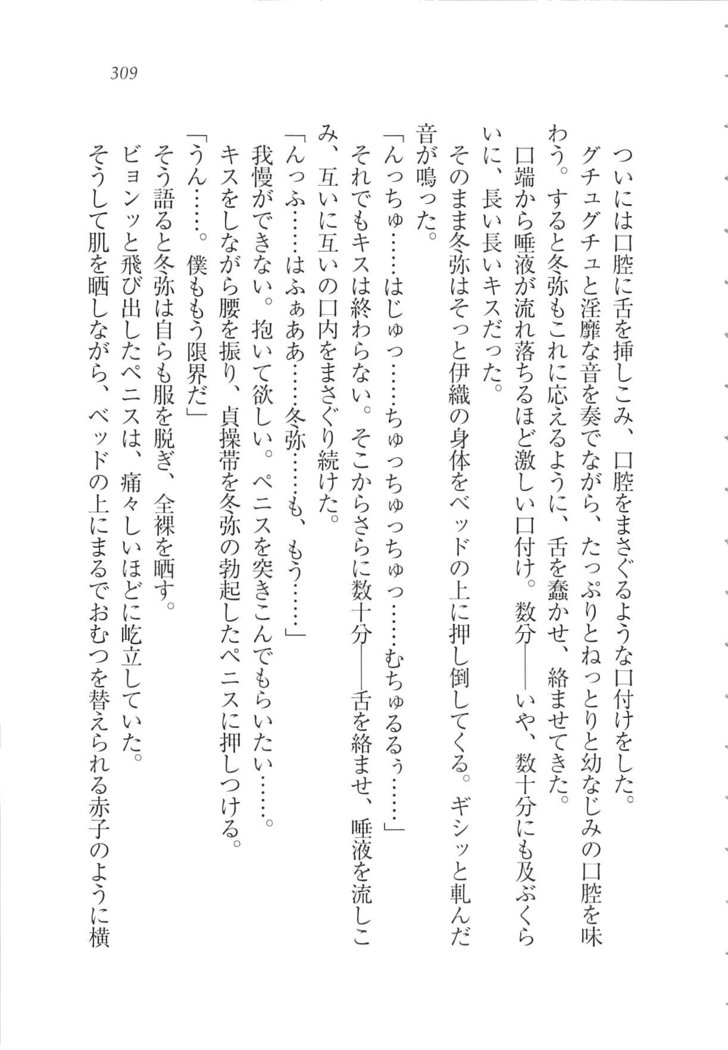 309
ついには口腔に舌を挿しこみ、口腔をまさぐるような口付けをした。
グチュグチュと淫靡な音を奏でながら、たっぷりとねっとりと幼なじみの口腔を味
わう。すると冬弥もこれに応えるように、舌を蠢かせ、絡ませてきた。
口端から唾液が流れ落ちるほど激しい口付け。数分――いや、数十分にも及ぶくら
いに、長い長いキスだった。
そのまま冬弥はそっと伊織の身体をベッドの上に押し倒してくる。ギシッと軋んだ
音が鳴った。
「んっちゅ……はじゅっ……ちゅっちゅっちゅっ……むちゅるるぅ……」
それでもキスは終わらない。そこからさらに数十分――舌を絡ませ、唾液を流しこ
み、互いに互いの口内をまさぐり続けた。
「んっふ……はふぁああ……冬弥……も、もう……」
我慢ができない。抱いて欲しい。ペニスを突きこんでもらいたい……。
キスをしながら腰を振り、貞操帯を冬弥の勃起したペニスに押しつける。
「うん……。僕ももう限界だ」
そう語ると冬弥は自らも服を脱ぎ、全裸を晒す。
ビョンッと飛び出したペニスは、痛々しいほどに屹立していた。
そうして肌を晒しながら、ベッドの上にまるでおむつを替えられる赤子のように横